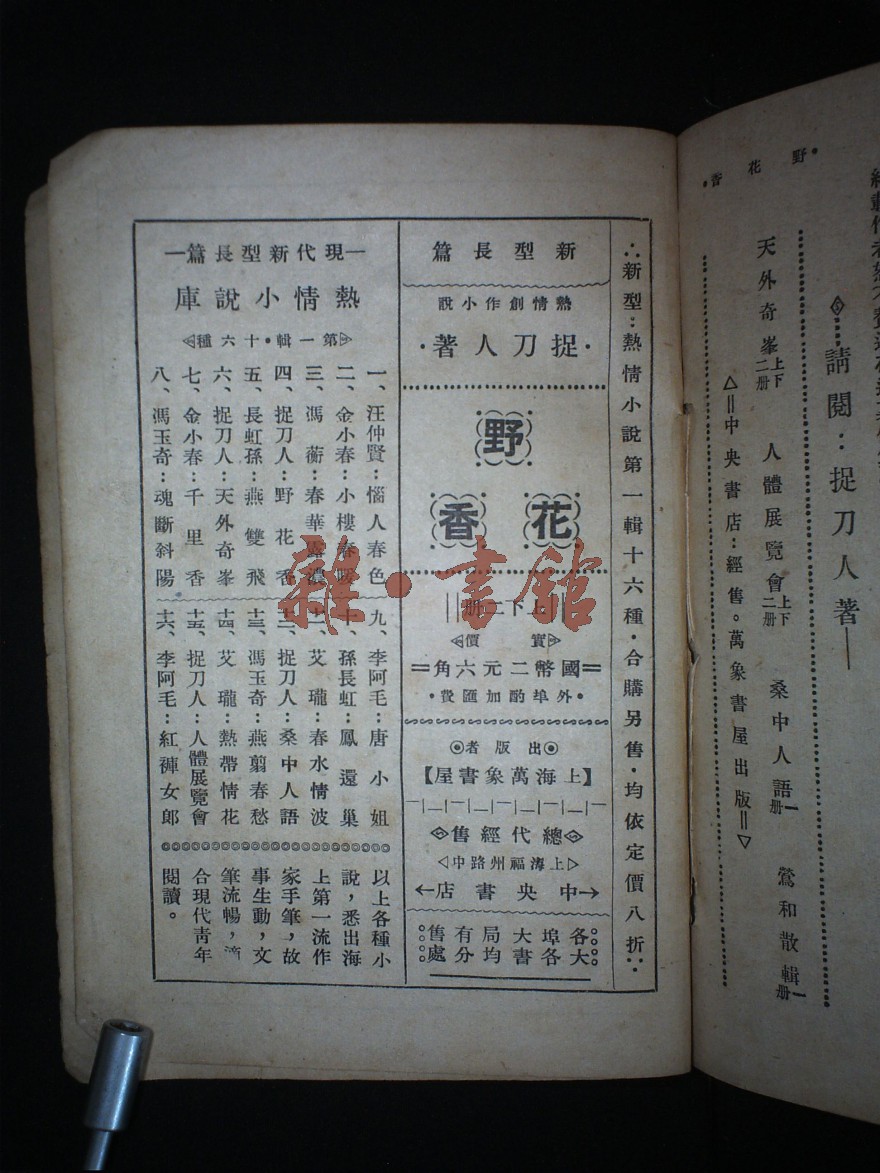 •野花香•
請閱：捉刀人著
天外奇峯上下二册　人體展覽會上下二册　桑中人語一册　鶯和散輯一册
中央書店：經售。萬象書屋出版
∴新型：熱情小說第一輯十六種•合購另售•均依定價八折∵
新型長篇
熱情創作小說
•捉刀人著•
野花香
上下二册
實價
國幣二元六角
•外埠酌加匯費•
出版者
【上海萬象書屋】
總代經售
上海福州路中
中央書店
各大埠各大書局均有分售處
—現代新型長篇—
熱情小說庫
第一輯•十六種
一、汪仲賢：惱人春色
二、金小春：小樓春暖
三、馮蘅：春華露濃
四、捉刀人：野花香
五、長虹孫：燕雙飛
六、捉刀人：天外奇峯
七、金小春：千里香
八、馮玉奇：魂斷斜陽
九、李阿毛：唐小姐
十、孫長虹：鳳還巢
十一、艾瓏：春水情波
十二、捉刀人：桑中人語
十三、馮玉奇：燕翦春愁
十四、艾瓏：熱帶情花
十五、捉刀人：人體展覽會
十六、李阿毛：紅褲女郎
以上各種小
說，悉出海
上第一流作
家手筆，故
事生動，文
筆流暢，適
合現代青年
閱讀。
雜·書館